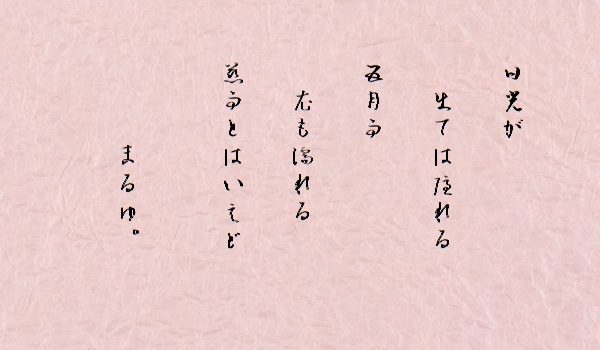 日光が
出ては隠れる
五月雨
衣も濡れる
慈雨とはいえど
まるゆ。